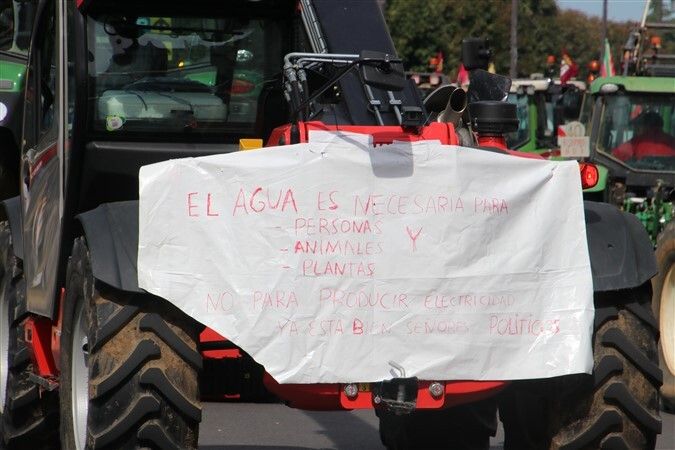 EL AGUA ES NECESARIA PARA
- PERSONAS
- ANIMALES Y
- PLANTAS
NO PARA PRODUCIR ELECTRICIDAD
YA ESTA BIEN SEÑORES POLÍTICOS